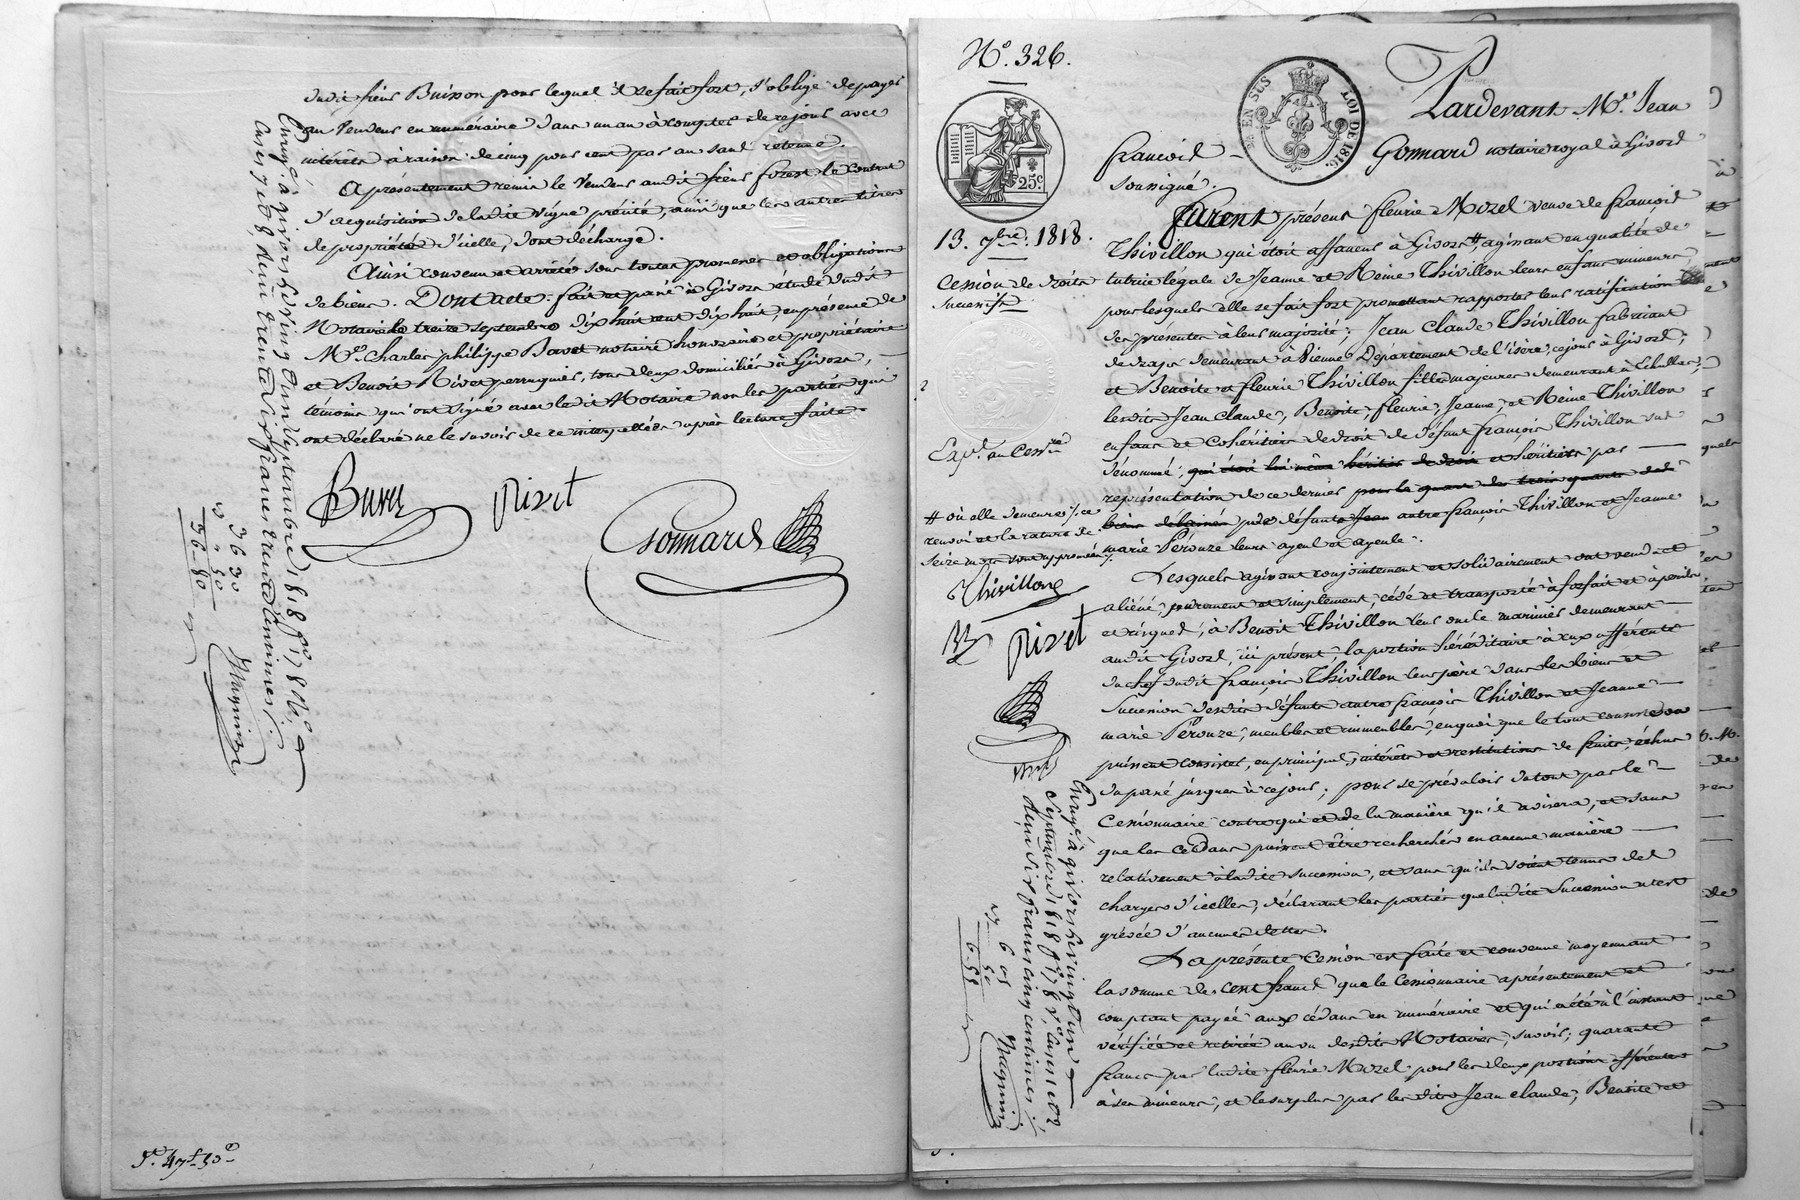 dudit sieur Buisson pour lequel il se fait fort, s'oblige de payer
au vendeur en numéraire dans un an à compter de ce jour avec
intérêts à raison de cinq pour cent par an sans retenue.
A présentement remis le vendeur audit sieur forest le contrat
d'acquisition de ladite vigne précité, ainsi que les autres titres
de propriété d'icelle, dont décharge.
Ainsi convenu et arrêté sous toutes promesses et obligations
de biens. Dont acte. fait et passé à Givors étude dudit
Notaire le treize septembre dix huit cent dix huit, en présence de
Mre. Charles philippe Bovet notaire honoraire et propriétaire
et Benoit Rivet perruquier, tous deux domiciliés à Givors,
témoins qui ont signé avec ledit Notaire non les parties qui
ont déclaré ne le savoir de ce interpellées après lecture faite.
Rivet
Gonnard
Enregé. à givors le vingt un septembre 1818 fo. 178
trente six francs vingt centimes
36 20
36.80
Magnin
No. 326.
EN SUS
LOI DE 1816.
25c
Pardevant Me. Jean
françois Gonnard notaire royal à Givors
soussigné.
13. 7bre. 1818.
Cession de droits
successifs
furent présent fleurie Mozel veuve de françois
Thivillon qui étoit affaneur à Givors #, agissant en qualité de
tutrice légale de Jeanne et Reine Thivillon leurs enfans mineurs
pour lesquels elle se fait fort promettant rapporter leur ratification
des présentes à leur majorité; Jean Claude Thivillon fabricant
de draps demeurant à Vienne Département de l'isère, ce jour à Givors;
et Benoite et fleurie Thivillon filles majeures demeurant à Echallas;
lesdits Jean Claude, Benoite, fleurie, Jeanne, et Reine Thivillon
enfans et Cohéritiers de droit de défunt françois Thivillon sus
dénommé, qui étoit lui même héritier de droit et héritiers par
représentation de ce dernier pour le quart des trois quarts des
biens delaissés par défunts Jean autre françois Thivillon et Jeanne
marie Perouze leurs ayeul et ayeule.
Expd. au Cessre
# où elle demeure /. ce
renvoi et la rature de
seize mots sont approuvés /.
Thivillon
Rivet
Lesquels agissant conjointement et solidairement ont vendu et
aliéné, purement et simplement, cédé et transporté à forfait et à perils
et risques, à Benoit Thivillon leur oncle marinier demeurant
audit Givors, ici présent, la portion héréditaire à eux afférente
du chef dudit françois Thivillon leur père dans les biens et
Succession desdits défunts autre françois Thivillon et Jeanne
marie Perouze, meubles et immeubles, en quoi que le tout consiste ou
puissent consister, en principal, intérêts et restitutions de fruits échus
du passé jusques à ce jour; pour se prévaloir du tout par le
Cessionnaire contre qui et de la manière qu'il avisera, et sans
que les Cédans puissent être recherchés en aucune manière
relativement à ladite succession, et sans qu'ils soient tenus des
charges d'icelles, déclarant les parties que ladite Succession n'est
grévée d'aucunes dettes.
La présente Cession est faite et convenue moyennant
la somme de cent francs que le Cessionnaire a présentement et
comptant payée aux cédans en numéraire et qui a été à l'instant
vérifiée et retirée au vu desdits Notaires, savoir; quarante
francs par ladite fleurie Mozel pour les deux portions afférentes
à ses mineurs, et le surplus par lesdits Jean Claude, Benoite et
Enregé. à givors le vingt un
septembre 1818 fo. 178
six francs cinq centimes
6 05
Magnin